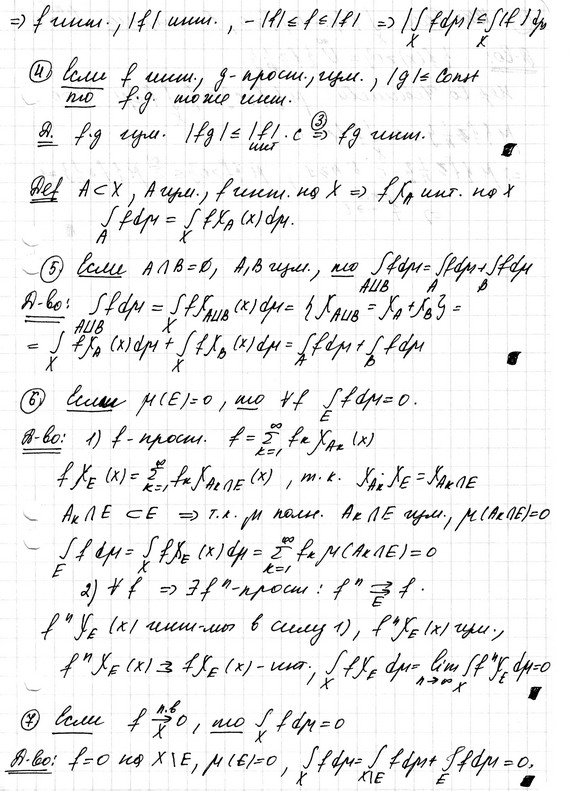 ⇒ f инт., |f| инт., -|f| ≤ f ≤ |f| ⇒ |∫_X f dμ| ≤ ∫_X |f| dμ
④ Если f инт., g - прост., изм., |g| ≤ const
то f·g тоже инт.
Д. f·g изм. |fg| ≤ |f|·c ③⇒ fg инт.
инт
Def A⊂X, A изм., f инт. на X ⇒ fχ_A инт. на X
∫_A f dμ = ∫_X fχ_A(x) dμ.
⑤ Если A∩B=∅, A,B изм., то ∫_{A⊔B} f dμ = ∫_A f dμ + ∫_B f dμ
Д-во: ∫_{A⊔B} f dμ = ∫_X fχ_{A⊔B}(x) dμ = {χ_{A⊔B} = χ_A + χ_B} =
= ∫_X fχ_A(x) dμ + ∫_X fχ_B(x) dμ = ∫_A f dμ + ∫_B f dμ
⑥ Если μ(E)=0, то ∀f ∫_E f dμ = 0.
Д-во: 1) f - прост. f = ∑_{k=1}^∞ f_k χ_{A_k}(x)
fχ_E(x) = ∑_{k=1}^∞ f_k χ_{A_k∩E}(x), т.к. χ_{A_k}·χ_E = χ_{A_k∩E}
A_k∩E ⊂ E ⇒ т.к. μ полн. A_k∩E изм., μ(A_k∩E)=0
∫_E f dμ = ∫_X fχ_E(x) dμ = ∑_{k=1}^∞ f_k μ(A_k∩E) = 0
2) ∀f ⇒ ∃f^n - прост: f^n ⇉_E f.
f^n χ_E(x) инт-мы в силу 1), f^n χ_E(x) изм.,
f^n χ_E(x) ⇉ fχ_E(x) - инт., ∫_X fχ_E dμ = lim_{n→∞} ∫_X f^n χ_E dμ = 0
⑦ Если f →^{п.в}_X 0, то ∫_X f dμ = 0
Д-во: f=0 на X\E, μ(E)=0, ∫_X f dμ = ∫_{X\E} f dμ + ∫_E f dμ = 0.